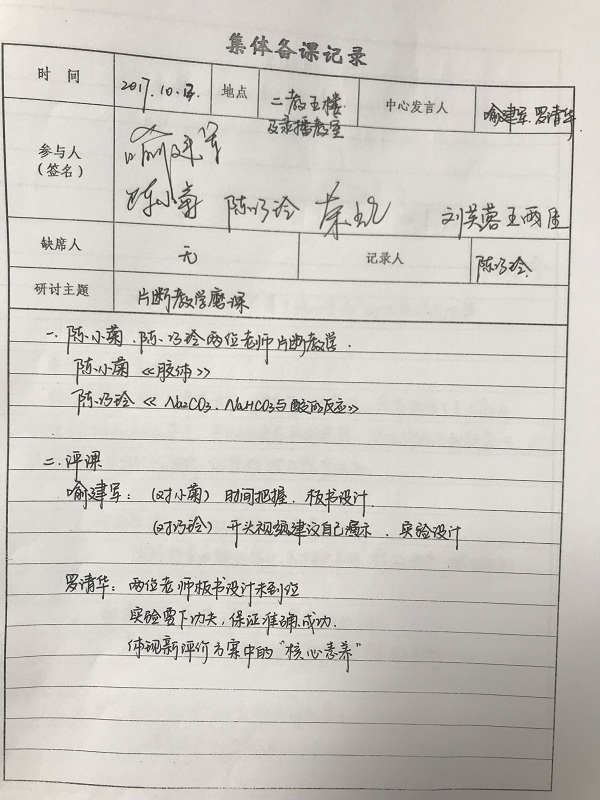 集体备课记录
时 间 2017.10.13. 地点 二教五楼及录播教室 中心发言人 喻建军.罗清华
参与人
(签名)
喻建军
陈小菊 陈巧玲 刘芙蓉 王雨
缺席人 无 记录人 陈巧玲.
研讨主题 片断教学磨课
一.陈小菊.陈巧玲两位老师片断教学.
陈小菊《胶体》
陈巧玲《Na2CO3、NaHCO3与酸的反应》
二.评课
喻建军:(对小菊)时间把握、板书设计
(对巧玲)开头视频建议自己演示、实验设计
罗清华:两位老师板书设计未到位
实验要下功夫,保证准确.成功.
体现新评价方案中的"核心素养"